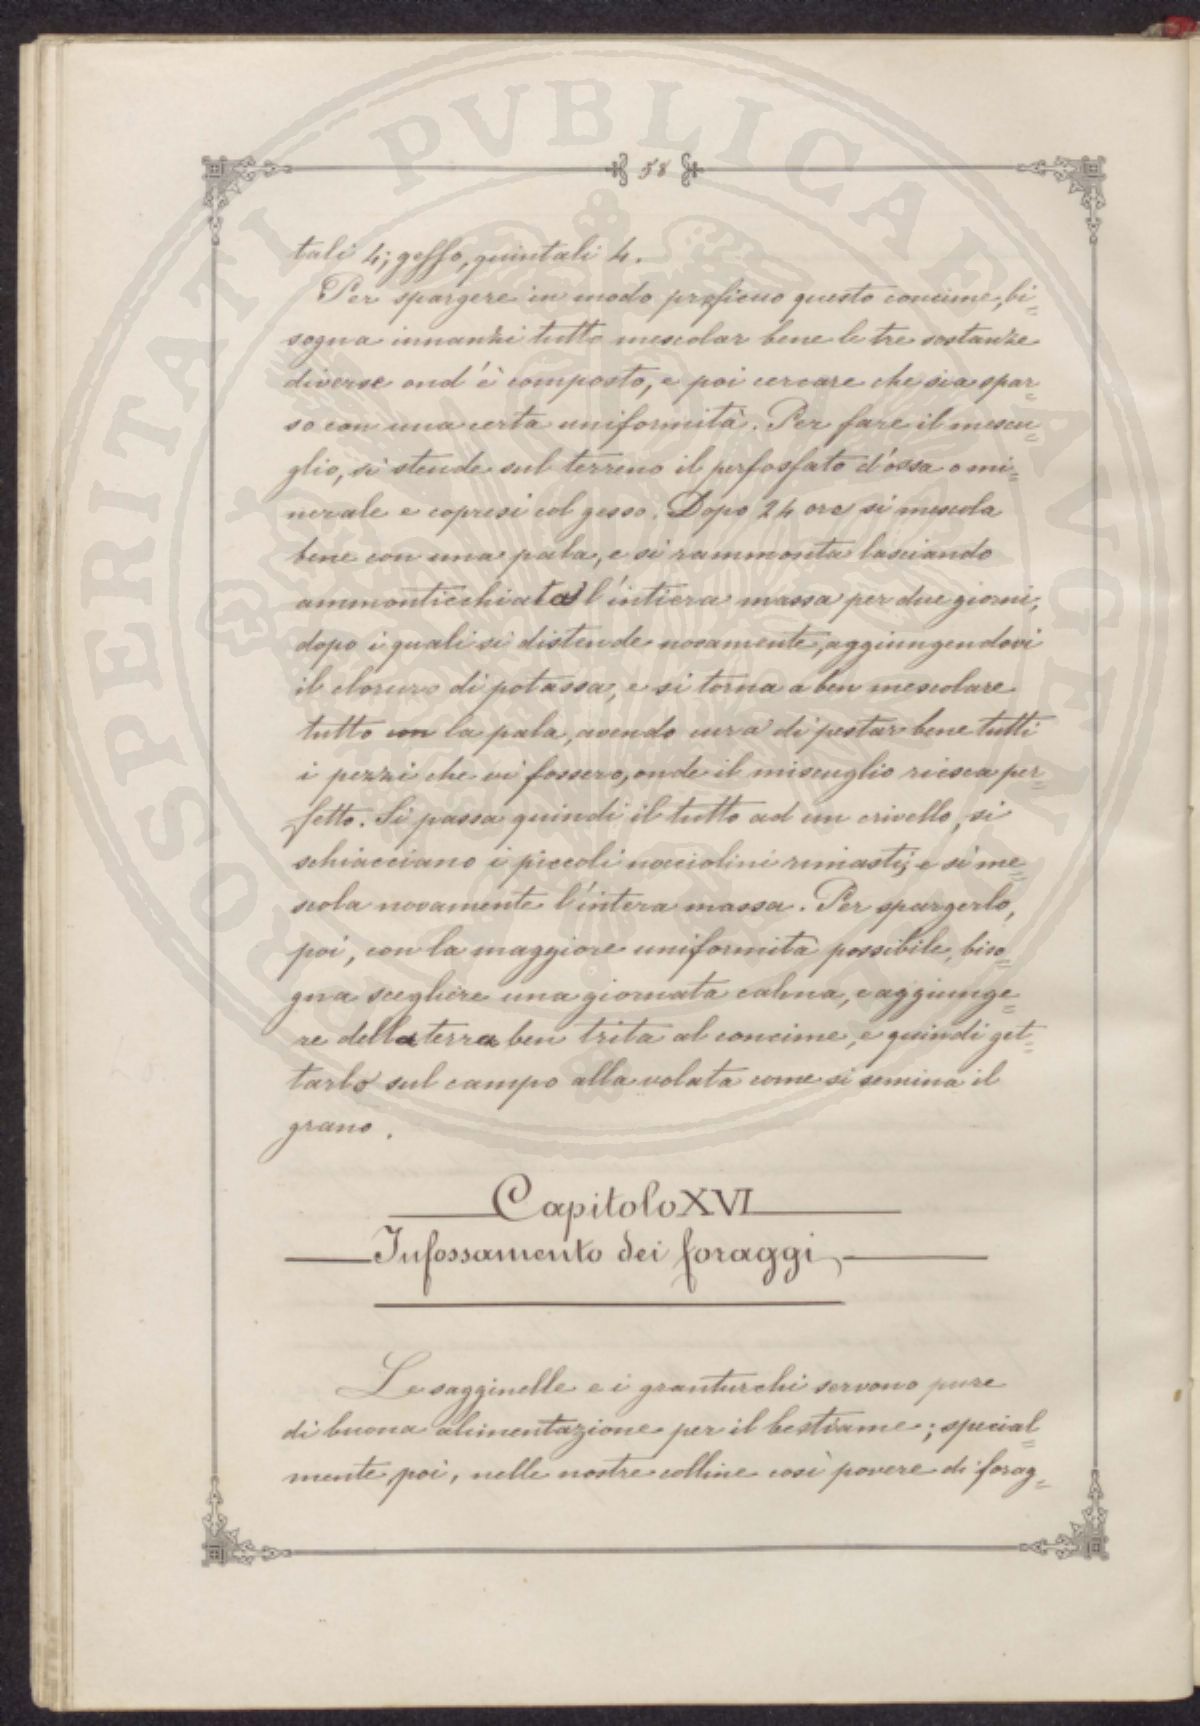 58
tali 4; gesso, quintali 4.
Per spargere in modo proficuo questo concime, bi=
sogna innanzi tutto mescolar bene le tre sostanze
diverse ond'è composto, e poi cercare che sia spar=
so con una certa uniformità. Per fare il mescu=
glio, si stende sul terreno il perfosfato d'ossa o mi=
nerale e copresi col gesso. Dopo 24 ore si mescola
bene con una pala, e si rammonta lasciando
ammonticchiata l'intiera massa per due giorni,
dopo i quali si distende novamente, aggiungendovi
il cloruro di potassa, e si torna a ben mescolare
tutto con la pala, avendo cura di pestar bene tutti
i pezzi che vi fossero, onde il miscuglio riesca per=
fetto. Si passa quindi il tutto ad un crivello, si
schiacciano i piccoli nocciolini rimasti, e si me=
scola novamente l'intera massa. Per spargerlo,
poi, con la maggiore uniformità possibile, biso=
gna scegliere una giornata calma, e aggiunge=
re della terra ben trita al concime, e quindi get=
tarlo sul campo alla volata come si semina il
grano.
Capitolo XVI
Infossamento dei foraggi
Le sagginelle e i granturchi servono pure
di buona alimentazione per il bestiame; special=
mente poi, nelle nostre colline così povere di forag=
PROSPERITATI PVBLICAE AVGENDAE